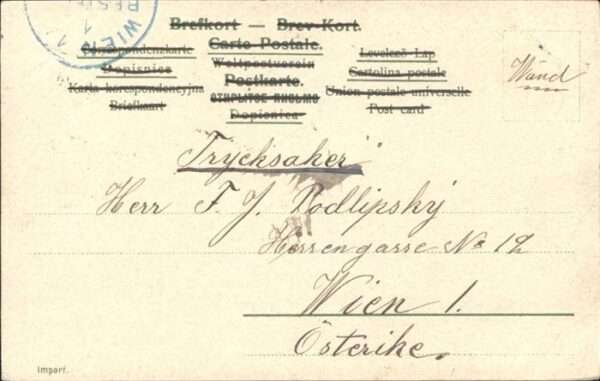 WIEN 1
BEST
Brefkort — Brev-Kort.
Correspondenzkarte Carte Postale. Levelező Lap
Dopisnice Weltpostverein Cartolina postale
Karta korespondencyjna Postkarte. Union postale universelle
Briefkaart Post card
Dopisnica
Wänd
Trycksaker
Herr F. J. Podlipský
Herrengasse No 12
Wien 1.
Österike.
Import.